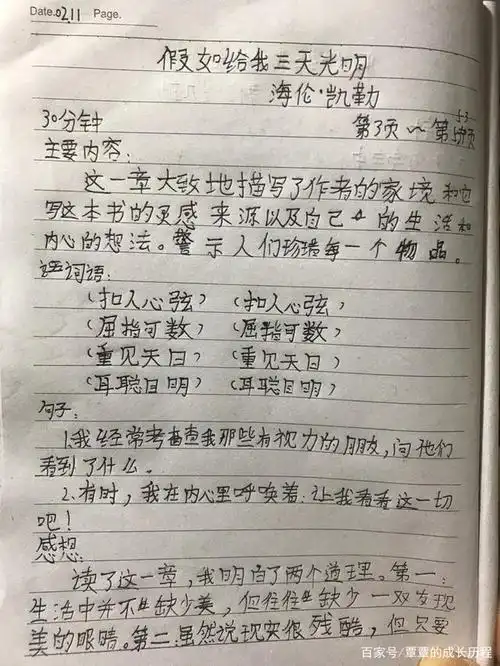 Date. 0211 Page.
假如给我三天光明
海伦·凯勒
30分钟 第3页~第53页
主要内容:
这一章大致地描写了作者的家境和它
写这本书的灵感来源以及自己的生活和
内心的想法。警示人们珍惜每一个物品。
词语:
(扣人心弦) (扣人心弦)
(屈指可数) (屈指可数)
(重见天日) (重见天日)
(耳聪目明) (耳聪目明)
句子:
1.我经常考查我那些有视力的朋友,问他们
看到了什么。
2.有时,我在内心里呼唤着:让我看看这一切
吧!
感想:
读了这一章,我明白了两个道理。第一:
生活中并不缺少美,但往往缺少一双发现
美的眼睛。第二:虽然说现实很残酷,但只要
百家号/覃覃的成长历程